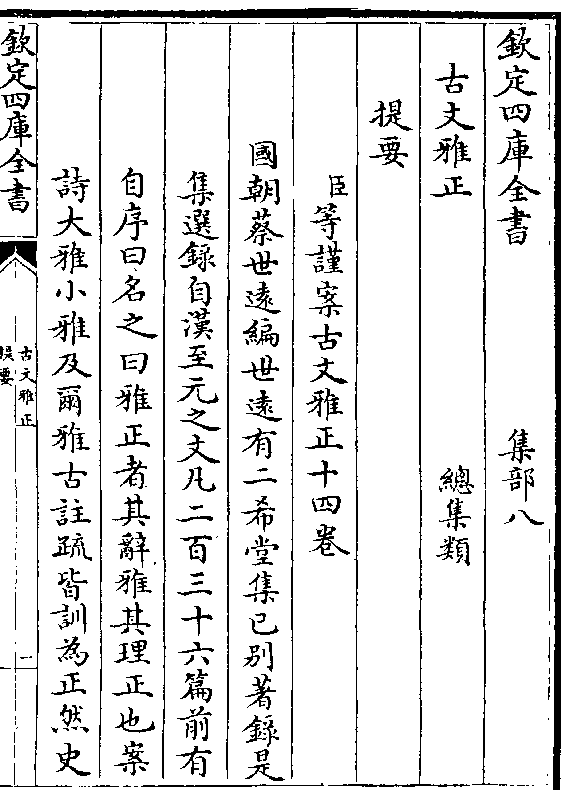 欽定四庫全書　　集部八
古文雅正　　總集類
提要
臣等謹案古文雅正十四卷
國朝蔡世遠編世遠有二希堂集已别著錄是
集選錄自漢至元之文凡二百三十六篇前有
自序曰名之曰雅正者其辭雅其理正也案
詩大雅小雅及爾雅古註疏皆訓為正然史
欽定四庫全書
古文雅正
提要
一